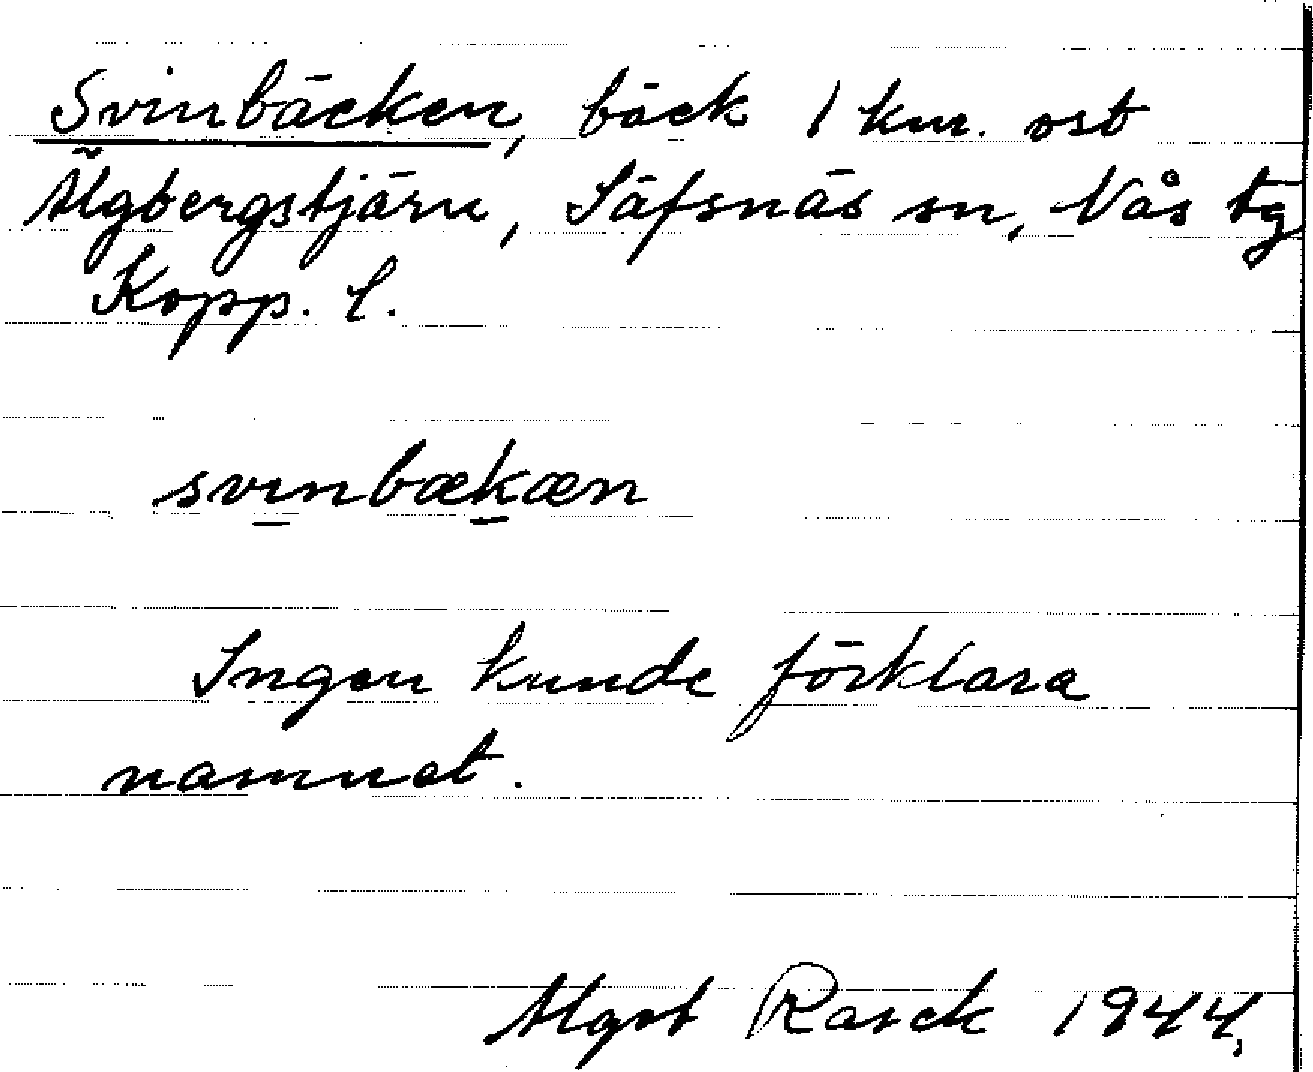 Svinbäcken, bäck 1 km. ost
Älgbergstjärn, Säfsnäs sn, Nås tg
Kopp. l.
svinbækæn
Ingen kunde förklara
namnet.
Algot Rasck 1944.